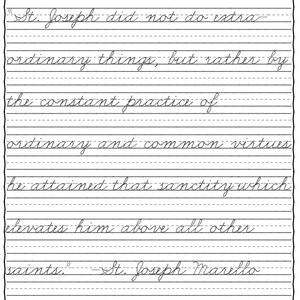 "St. Joseph did not do extra-
ordinary things, but rather by
the constant practice of
ordinary and common virtues
he attained that sanctity which
elevates him above all other
saints." —St. Joseph Marello